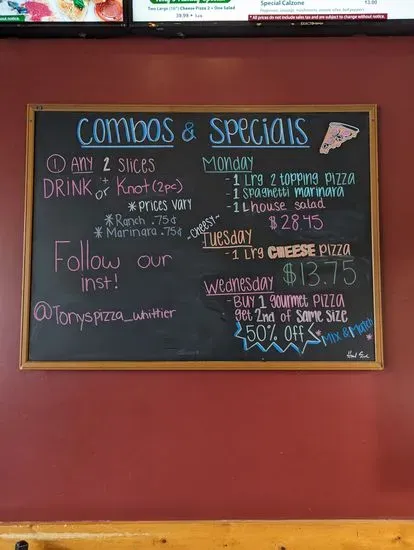 Two Large (16") Cheese Pizza 2 + One Salad
39.99
Special Calzone
13.00
* All prices do not include sales tax and are subject to change without notice.
COMBOS & SPECIALS
① ANY 2 SLICES
DRINK + or Knot (2pc)
* PRICES VARY
* Ranch .75¢
* Marinara .75¢
Follow our
inst!
@Tonyspizza_whittier
Monday
- 1 Lrg 2 topping pizza
- 1 Spaghetti marinara
- 1 L house salad
$28.45
-cheesy-
Tuesday
- 1 Lrg CHEESE PIZZA
$13.75
Wednesday
- Buy 1 gourmet pizza
get 2nd of same size
50% off
* Mix & Match *